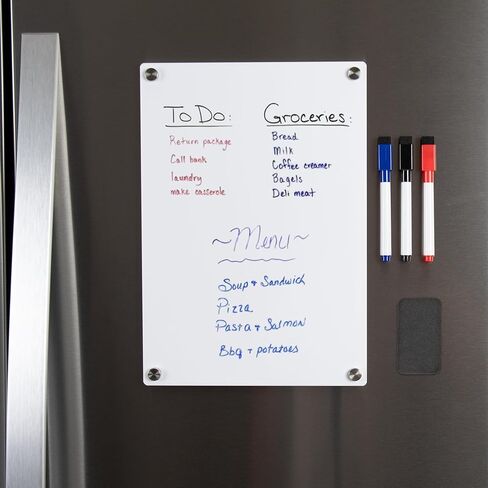 To Do:
Return package
Call bank
laundry
make casserole
Groceries:
Bread
Milk
Coffee creamer
Bagels
Deli meat
~Menu~
Soup + Sandwich
Pizza
Pasta + Salmon
Bbq + potatoes